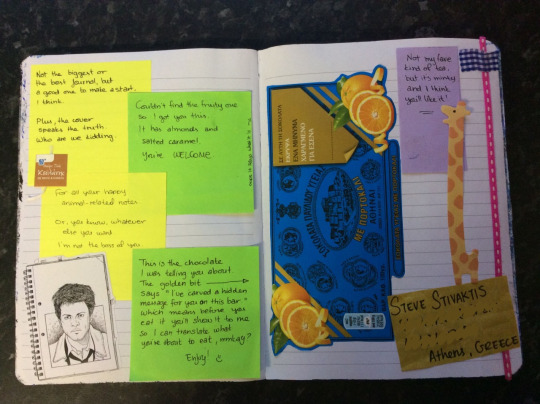 Not the biggest or
the best journal, but
a good one to make a start,
I think.
Plus, the cover
speaks the truth.
Who are we kidding.
Couldn't find the fruity one
so I got you this.
It has almonds and
salted caramel.
You're WELCOME.
For all your happy
animal-related notes.
Or, you know, whatever
else you want.
I'm not the boss of you.
This is the chocolate
I was telling you about.
The golden bit
says "I've carved a hidden
message for you on this bar."
Which means before you
eat it you'll show it to me
so I can translate what
you're about to eat, mmkay?
Enjoy!
Not my fave
kind of tea,
but it's minty
and I think
you'll like it!
ΣΕ ΑΥΤΗ ΤΗ ΣΟΚΟΛΑΤΑ
ΕΚΡΥΨΑ
ΕΝΑ ΜΗΝΥΜΑ
ΧΑΡΑΓΜΕΝΟ
ΓΙΑ ΕΣΕΝΑ
ΣΟΚΟΛΑΤΑ ΠΑΥΛΙΔΟΥ ΥΓΕΙΑΣ
ΜΕ ΠΟΡΤΟΚΑΛΙ
ΑΘΗΝΑΙ
STEVE STIVAKTIS
Athens, GREECE